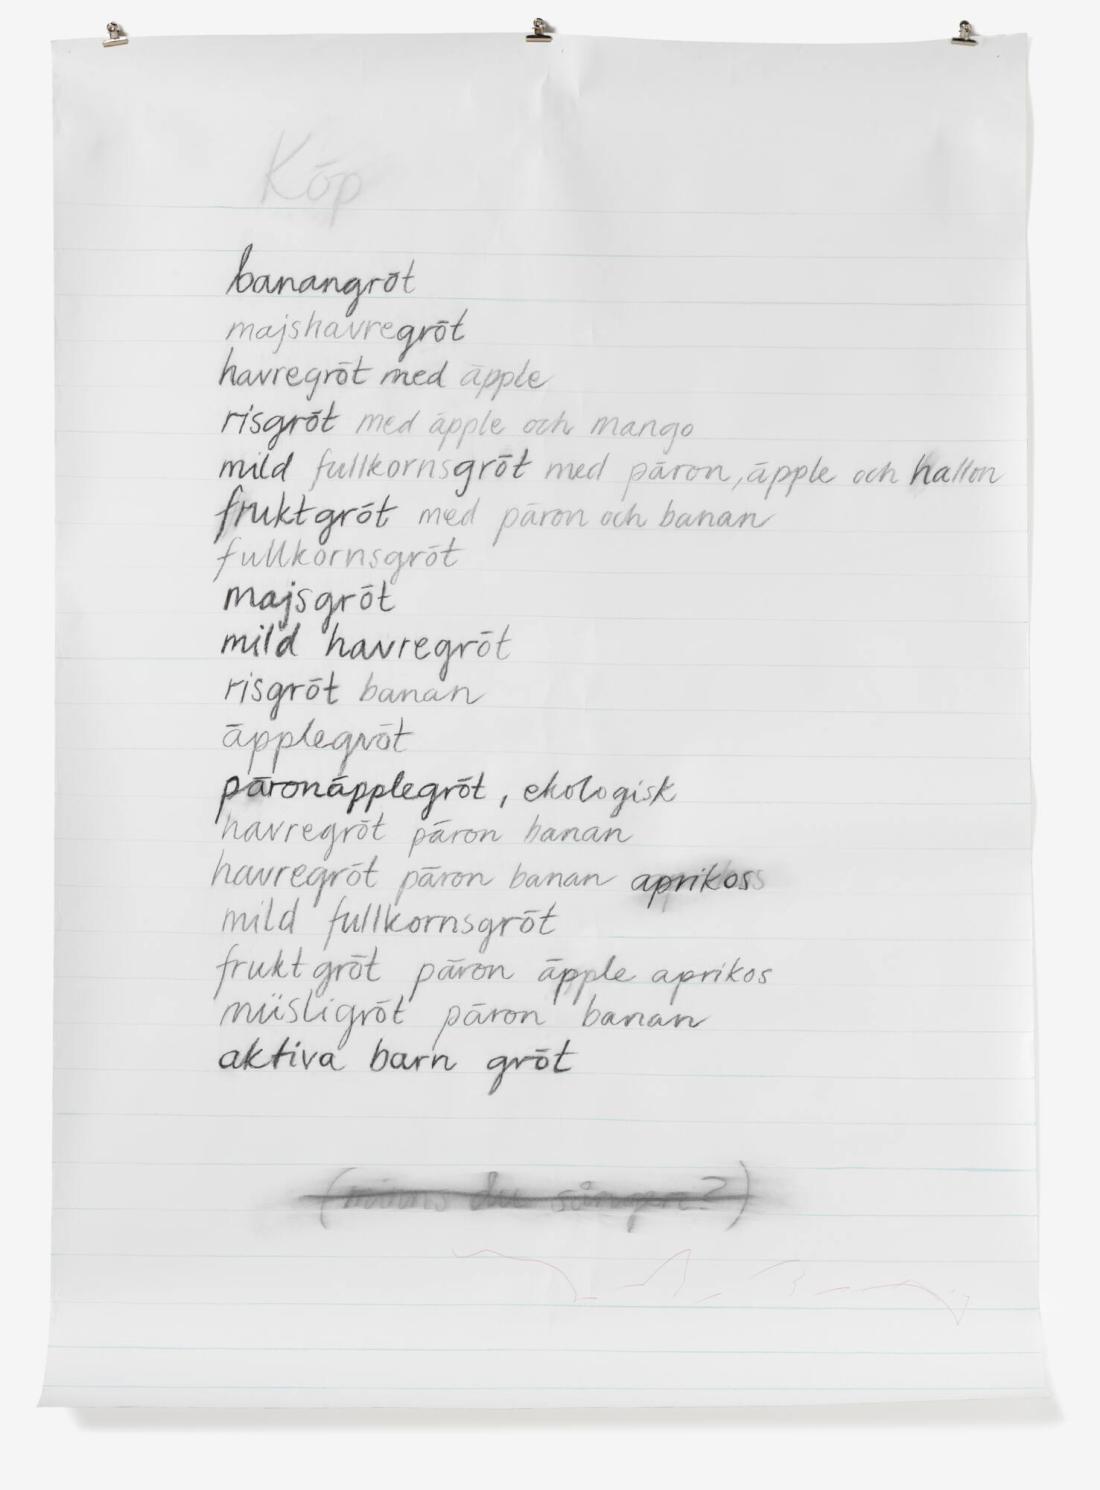 Köp
banangröt
majshavregröt
havregröt med äpple
risgröt med äpple och mango
mild fullkornsgröt med päron, äpple och hallon
fruktgröt med päron och banan
fullkornsgröt
majsgröt
mild havregröt
risgröt banan
äpplegröt
päronäpplegröt, ekologisk
havregröt päron banan
havregröt päron banan aprikos
mild fullkornsgröt
fruktgröt päron äpple aprikos
müsligröt päron banan
aktiva barn gröt
(minns du sången?)